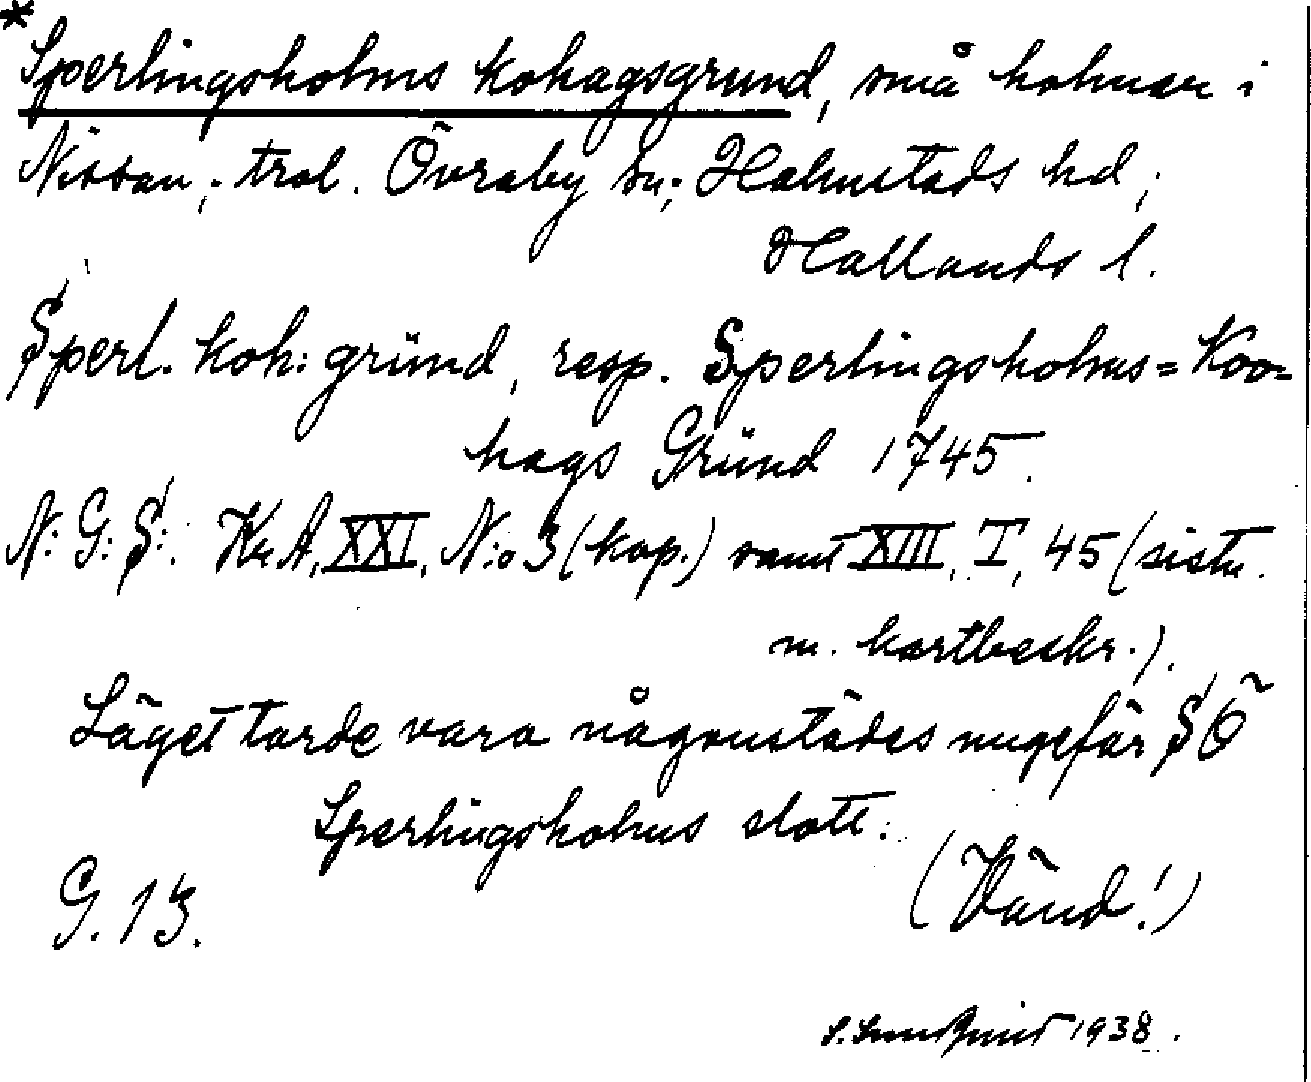 *Sperlingsholms kohagsgrund, små holmar i
Nissan; trol. Övraby sn; Halmstads hd;
Hallands l.
Sperl. koh: grŭnd, resp. Sperlingsholms=Koo=
hags Grŭnd 1745.
N: G: S:. Kr.A. XXI, N:o 3 (kop.) samt XIII, I, 45 (sistn.
m. kartbeskr.).
Läget torde vara någonstädes ungefär SÖ
Sperlingsholms slott.
(Vänd!)
G. 13.
S. Sundquist 1938.